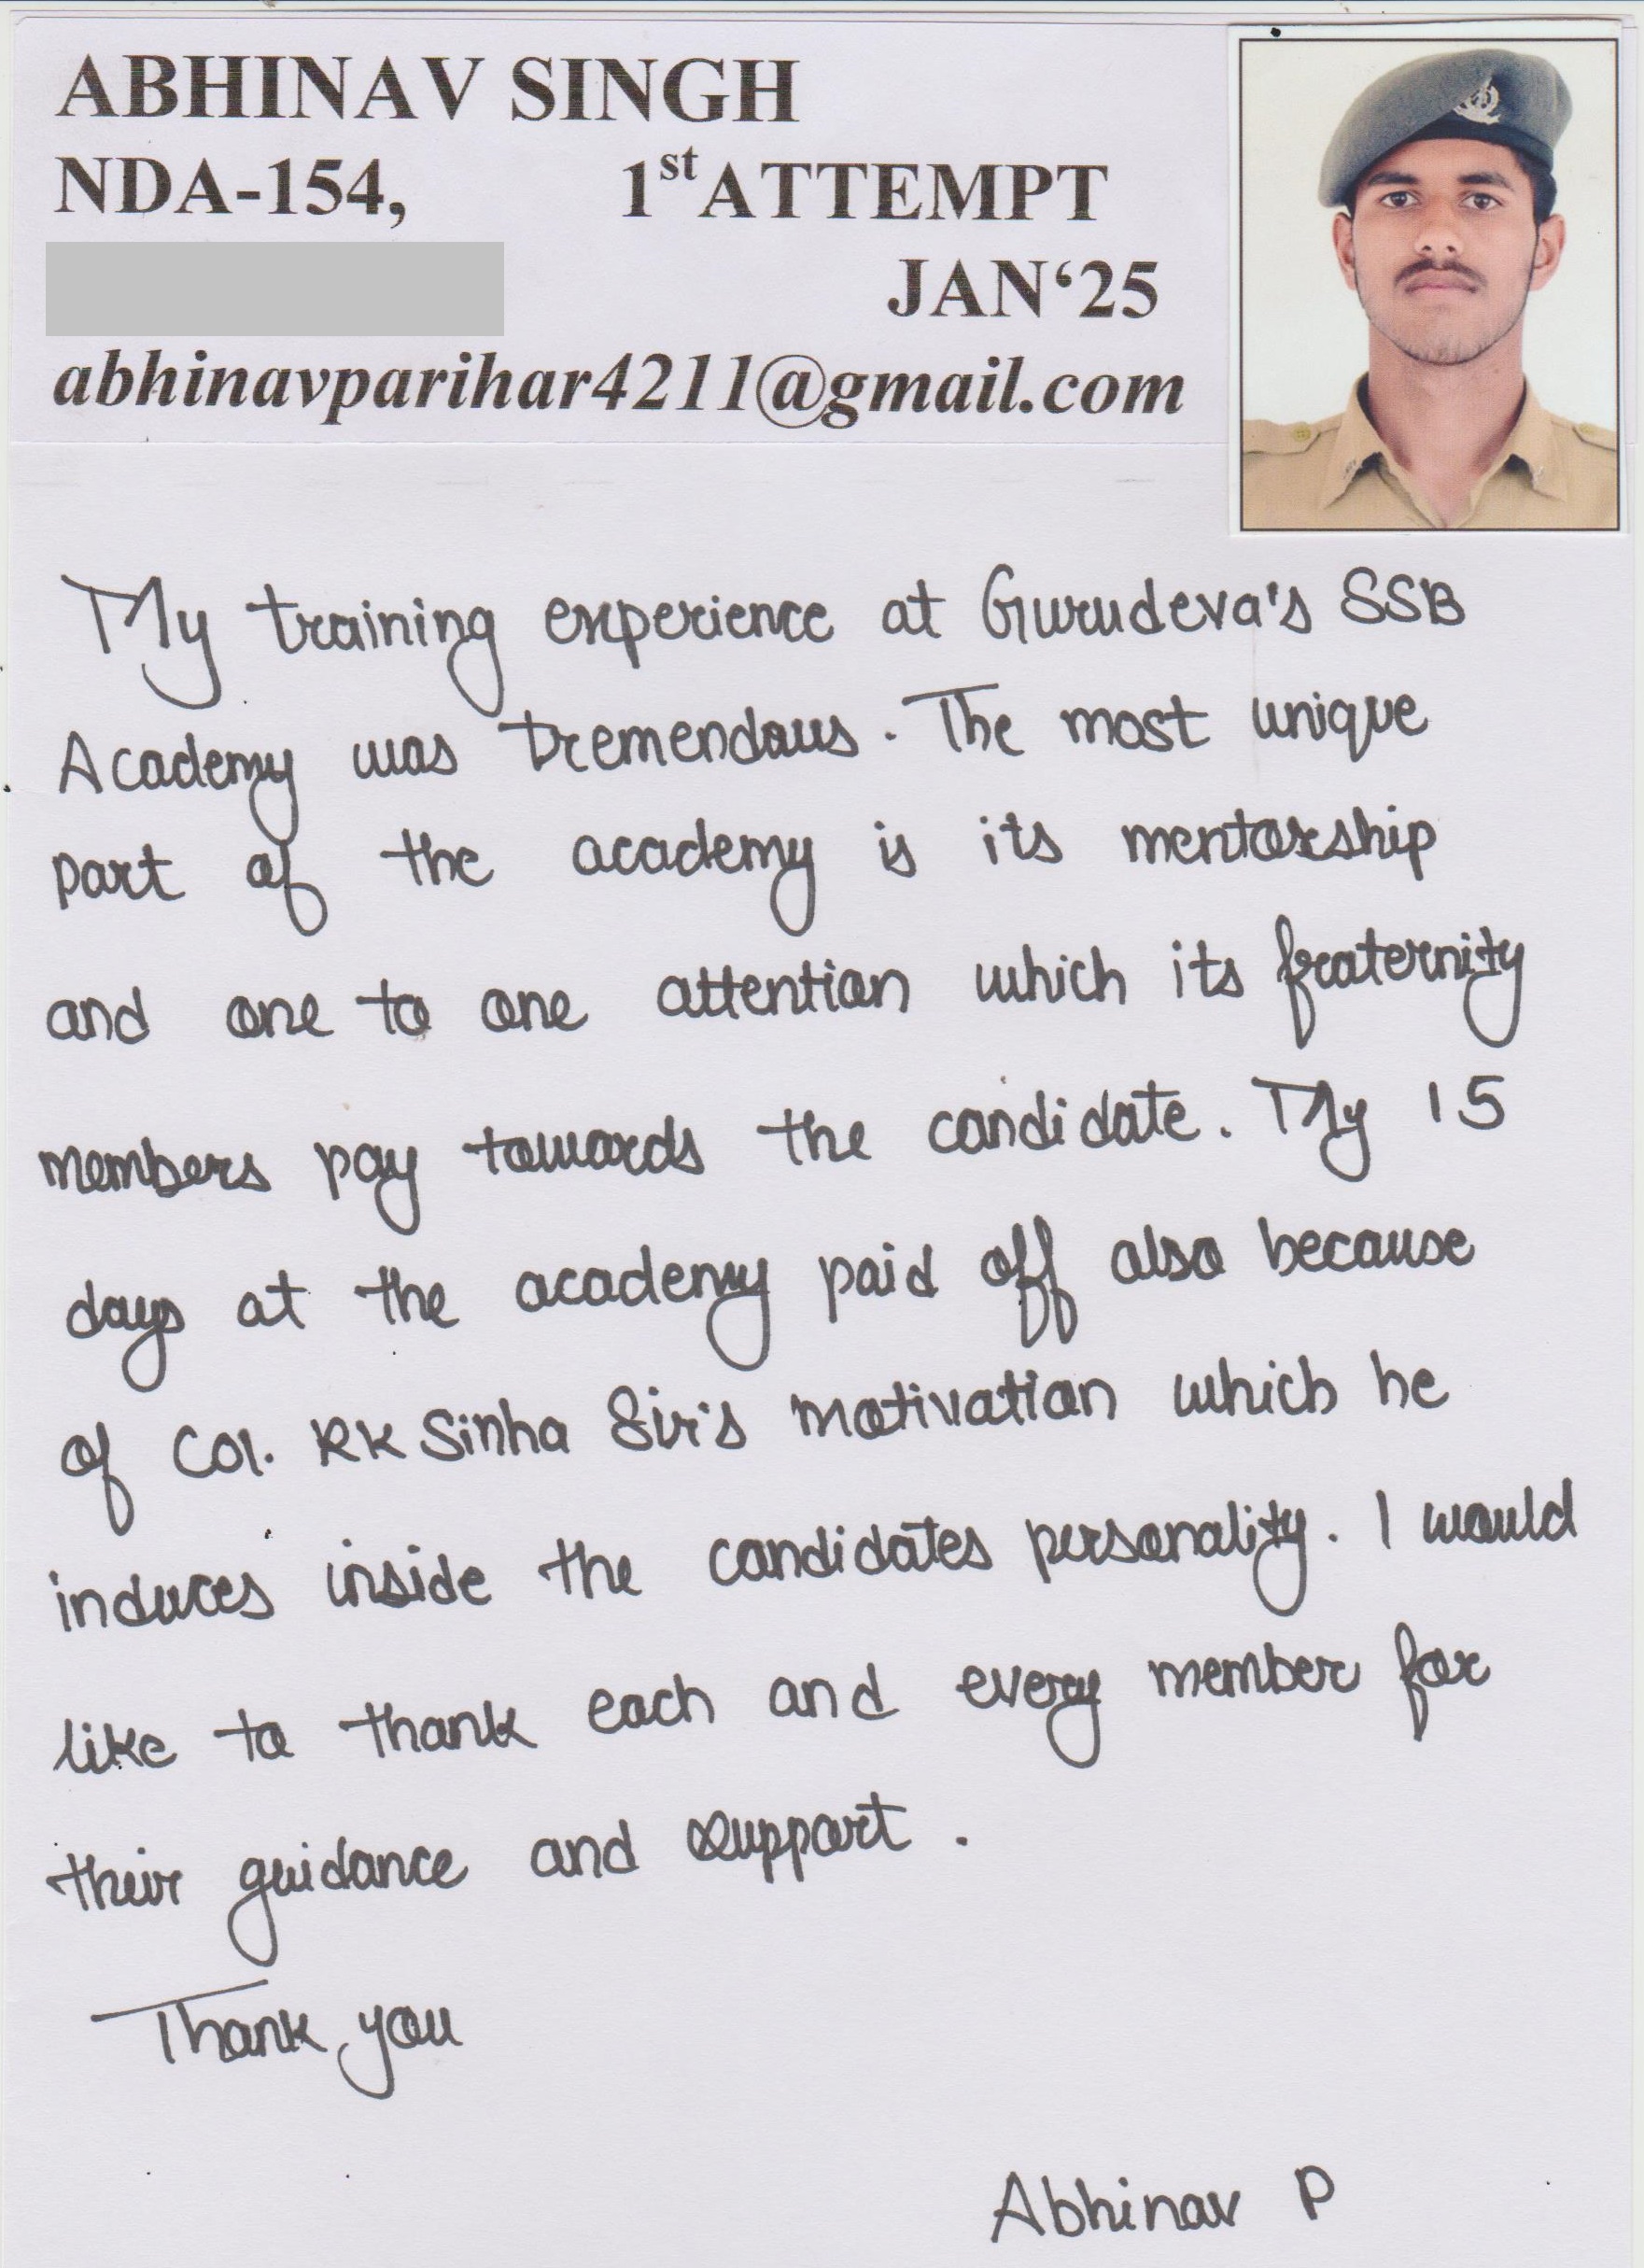 ABHINAV SINGH
NDA-154, 1st ATTEMPT
JAN‘25
abhinavparihar4211@gmail.com
My training experience at Gurudeva's SSB
Academy was tremendous. The most unique
part of the academy is its mentorship
and one to one attention which its fraternity
members pay towards the candidate. My 15
days at the academy paid off also because
of Col. RK Sinha Sir's motivation which he
induces inside the candidates personality. I would
like to thank each and every member for
their guidance and support.
Thank you
Abhinav P